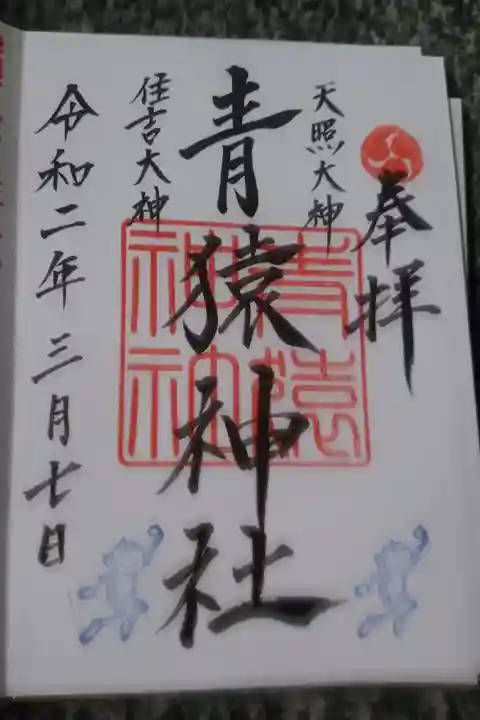 奉拝
天照大神
青猿神社
住吉大神
令和二年三月七日